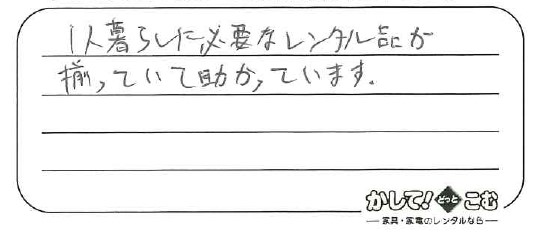 1人暮らしに必要なレンタル品が
揃っていて助かっています。
かして!どっとこむ
家具・家電のレンタルなら